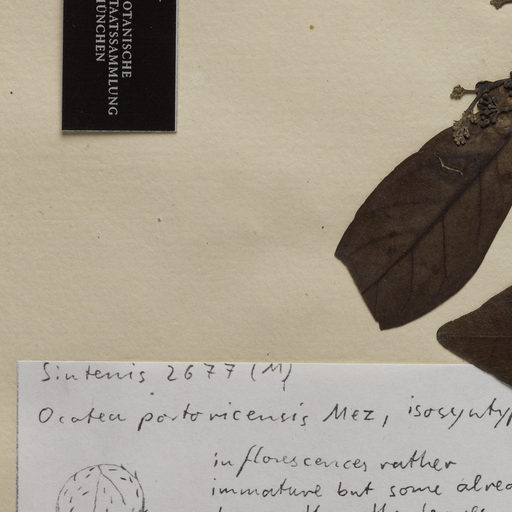 BOTANISCHE
STAATSSAMMLUNG
MÜNCHEN
Sintenis 2677 (M)
Ocotea portoricensis Mez, isosyntyp
inflorescences rather
immature but some alrea